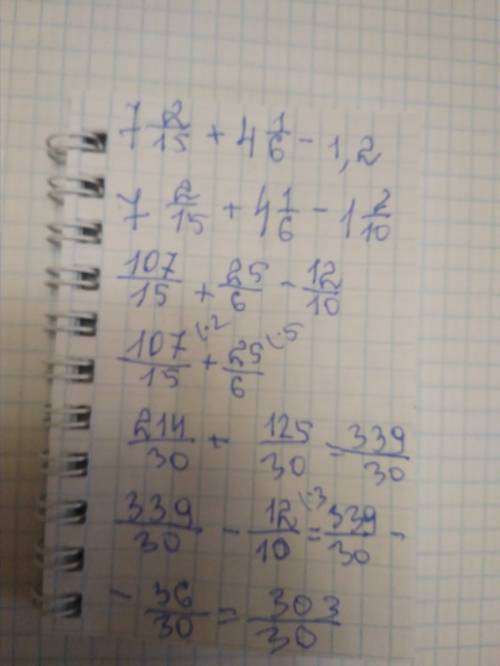 7 2/15 + 4 1/6 - 1,2
7 2/15 + 4 1/6 - 1 2/10
107/15 + 25/6 - 12/10
107/15 (·2 + 25/6 (·5
214/30 + 125/30 = 339/30
339/30 - 12/10 (·3 = 339/30 -
- 36/30 = 303/30